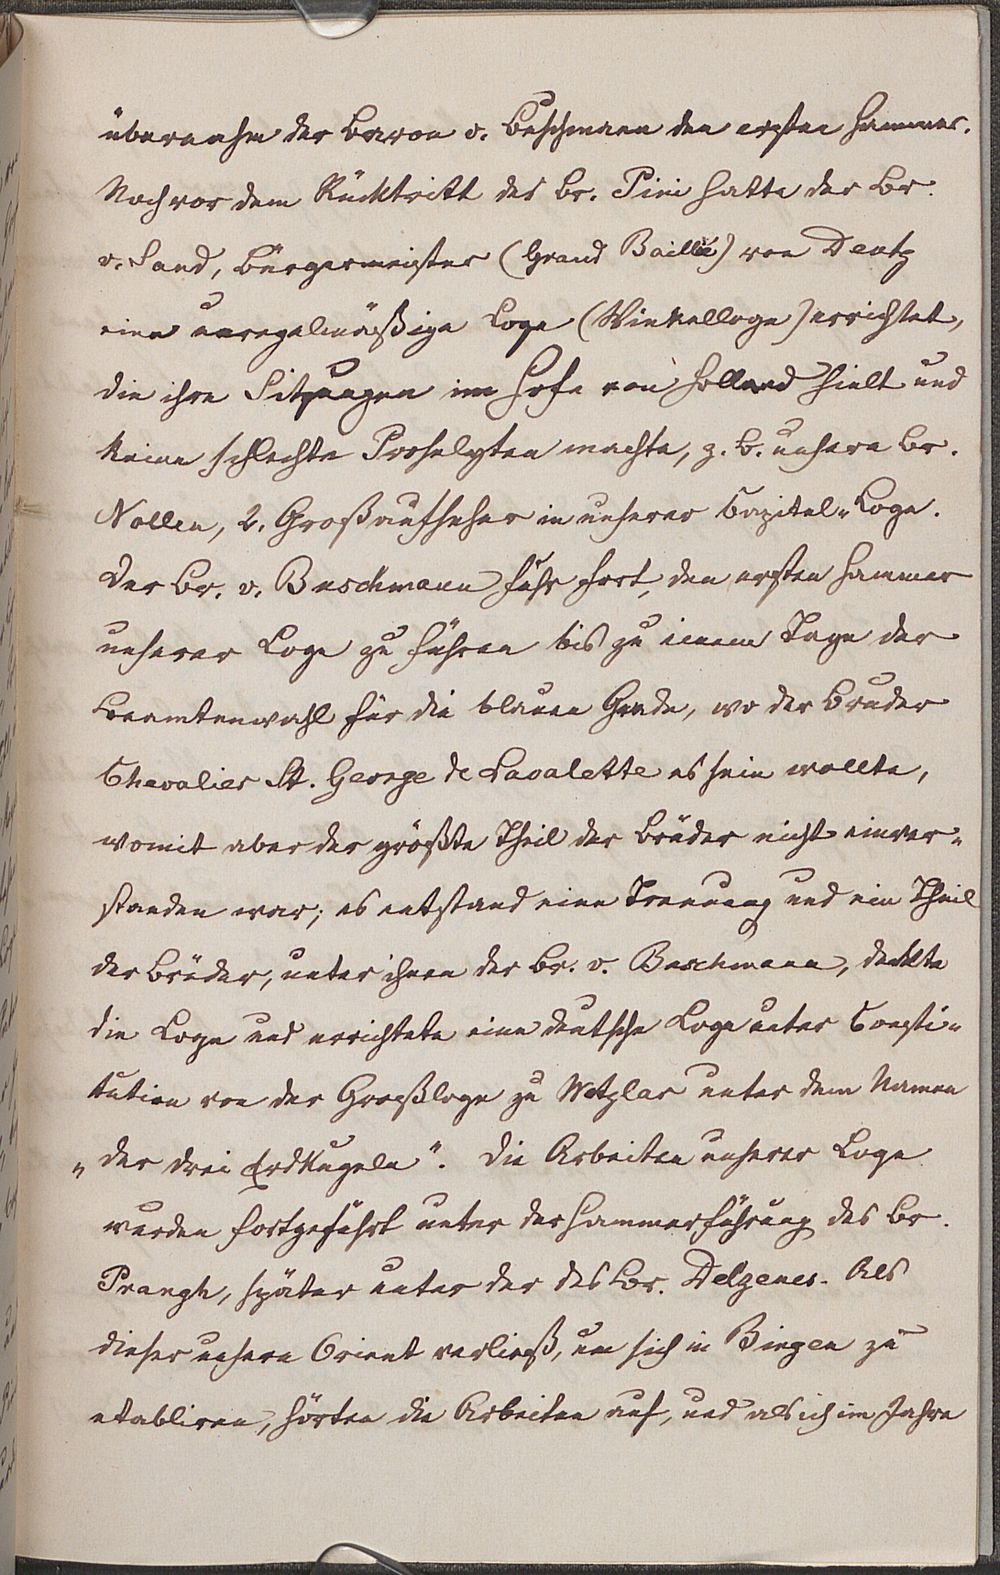 übernahm der Baron v. Beschmann den ersten Hammer.
Noch vor dem Rücktritt des Br. Pini hatte der Br.
v. Sand, Bürgermeister (Grand Bailli) von Deutz
eine unregelmäßige Loge (Winkelloge) errichtet,
die ihre Sitzungen im Hofe von Holland hielt und
keine schlechte Proselyten machte, z. B. unsern Br.
Nollen, 2. Großaufseher in unserer Capitel-Loge.
Der Br. v. Beschmann fuhr fort, den ersten Hammer
unserer Loge zu führen bis zu einem Tage der
Beamtenwahl für die blauen Grade, wo der Bruder
Chevalier St. George de Lavalette es sein wollte,
womit aber der größte Theil der Brüder nicht einver-
standen war; es entstand eine Trennung und ein Theil
der Brüder, unter ihnen der Br. v. Beschmann, deckte
die Loge und errichtete eine deutsche Loge unter Consti-
tution von der Großloge zu Wetzlar unter dem Namen
„der drei Erdkugeln“. Die Arbeiten unserer Loge
wurden fortgeführt unter der Hammerführung des Br.
Prangh, später unter der des Br. Delzenes. Als
dieser unsern Orient verließ, um sich in Bingen zu
etabliren, hörten die Arbeiten auf, und als ich im Jahre